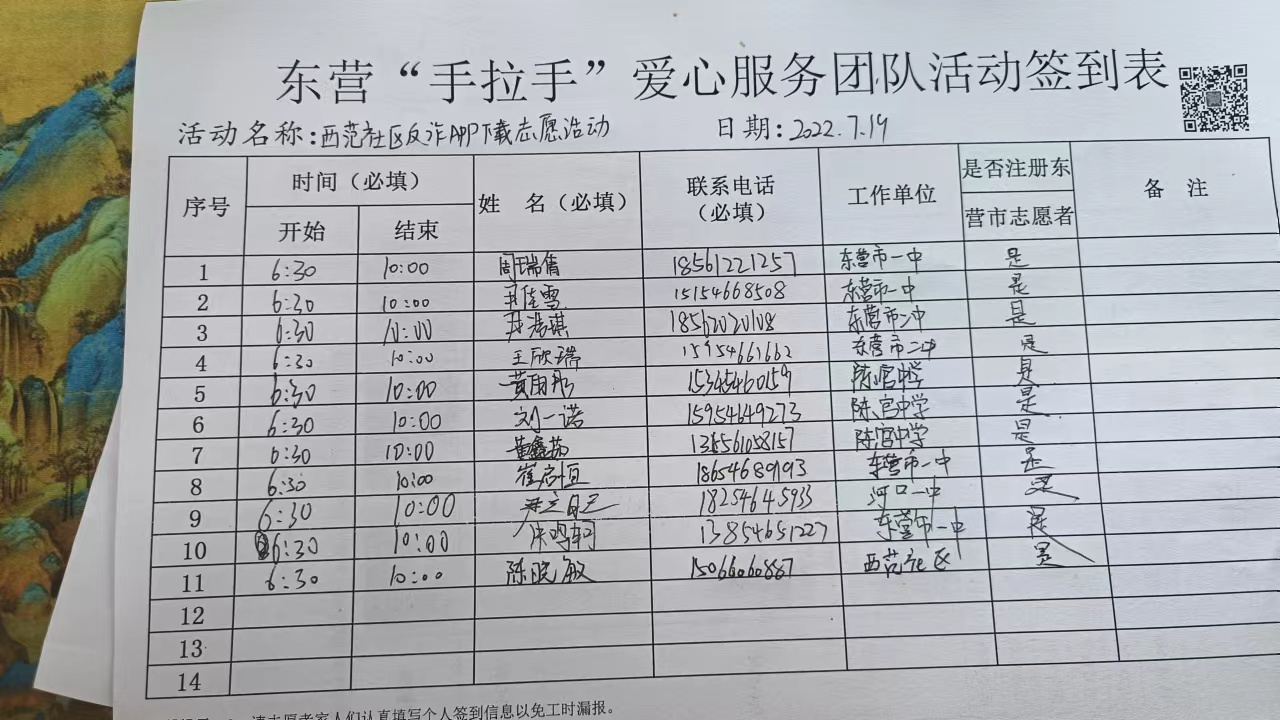 东营“手拉手”爱心服务团队活动签到表
活动名称：西范社区反诈APP下载志愿活动 日期：2022.7.19
序号 时间（必填） 姓 名（必填） 联系电话（必填） 工作单位 是否注册东营市志愿者 备 注
开始 结束
1 6:30 10:00 周瑞倩 18561221257 东营市一中 是
2 6:30 10:00 佳雪 15154668508 东营市一中 是
3 6:30 10:00 浩琪 18562020108 东营市二中 是
4 6:30 10:00 王欣瑞 15154661662 东营市二中 是
5 6:30 10:00 黄雨彤 15345460159 陈官中学 是
6 6:30 10:00 刘一诺 15954649273 陈官中学 是
7 6:30 10:00 陈官中学 是
8 6:30 10:00 崔启恒 18654689193 东营市一中 是
9 6:30 10:00 18254645933 河口一中 是
10 6:30 10:00 13854651227 东营市一中 是
11 6:30 10:00 陈晓敏 15066060887 西范社区 是
12
13
14
请志愿者家人们认真填写个人签到信息以免工时漏报。